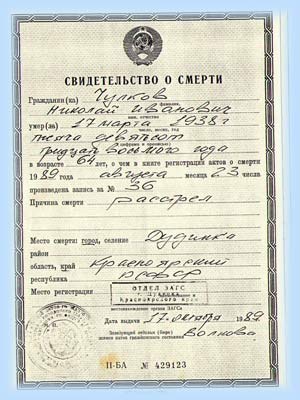 СВИДЕТЕЛЬСТВО О СМЕРТИ
Гражданин(ка) Чулков
фамилия,
Николай Иванович
имя, отчество
умер(ла) 17 марта 1938 г.
число, месяц, год
тысяча девятьсот
(цифрами и прописью)
тридцать восьмого года
в возрасте 64 лет, о чем в книге регистрации актов о смерти
1989 года августа месяца 23 числа
произведена запись за № 36
Причина смерти расстрел
Место смерти: город, селение Дудинка
район
область, край Красноярский
республика РСФСР
Место регистрации ОТДЕЛ ЗАГС
Красноярского края
местонахождение органа ЗАГСа
Дата выдачи 17 октября 1989
Заведующий отделом (бюро)
записи актов гражданского состояния
Волкова
II-БА № 429123